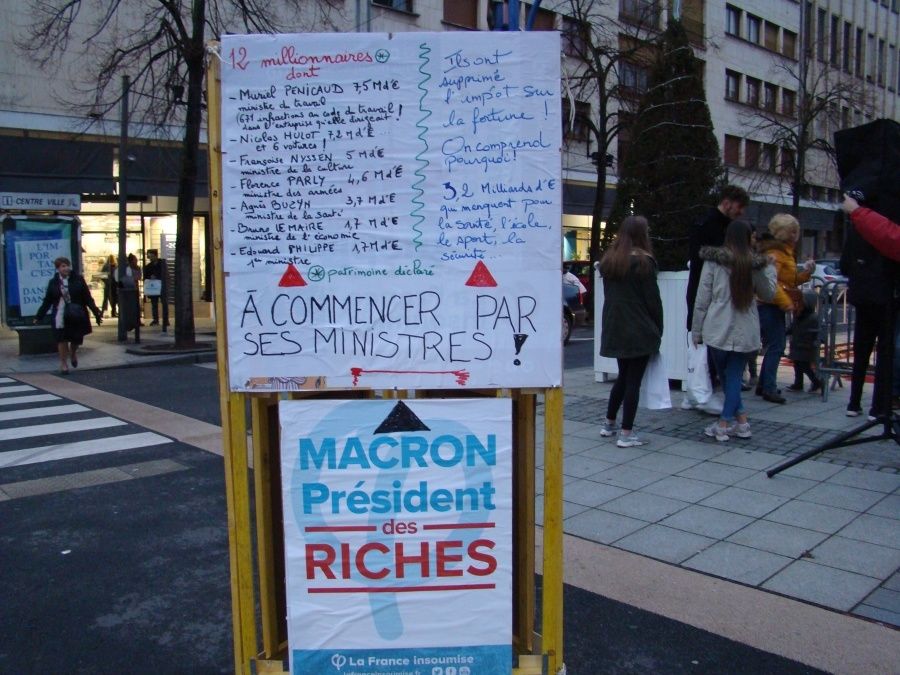 12 millionnaires *
dont
- Muriel PENICAUD 7,5 Md'€
ministre du travail
(671 infractions au code du travail !
dans l'entreprise qu'elle dirigeait !
- Nicolas HULOT 7,2 Md'€...
et 6 voitures !
- Françoise NYSSEN 5 Md'€
ministre de la culture
- Florence PARLY 4,6 Md'€
ministre des armées
- Agnès BUZYN 3,7 Md'€
ministre de la santé
- Bruno LE MAIRE 1,7 Md'€
ministre de l'économie
- Edouard PHILIPPE 1,7 Md'€
1er ministre
* patrimoine déclaré
Ils ont
supprimé
l'impôt sur
la fortune !
On comprend
pourquoi !
3,2 Milliards d'€
qui manquent pour
la Santé, l'école,
le sport, la
sécurité...
À COMMENCER PAR
SES MINISTRES !
MACRON
Président
des
RICHES
La France insoumise
lafranceinsoumise.fr
CENTRE VILLE
L'IM
POR
TAN
C'EST
DANS